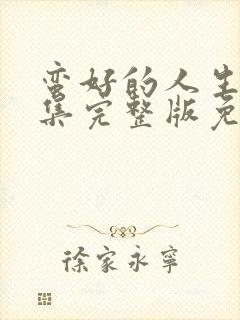 蛮好的人生
集完整版免
徐家永寧